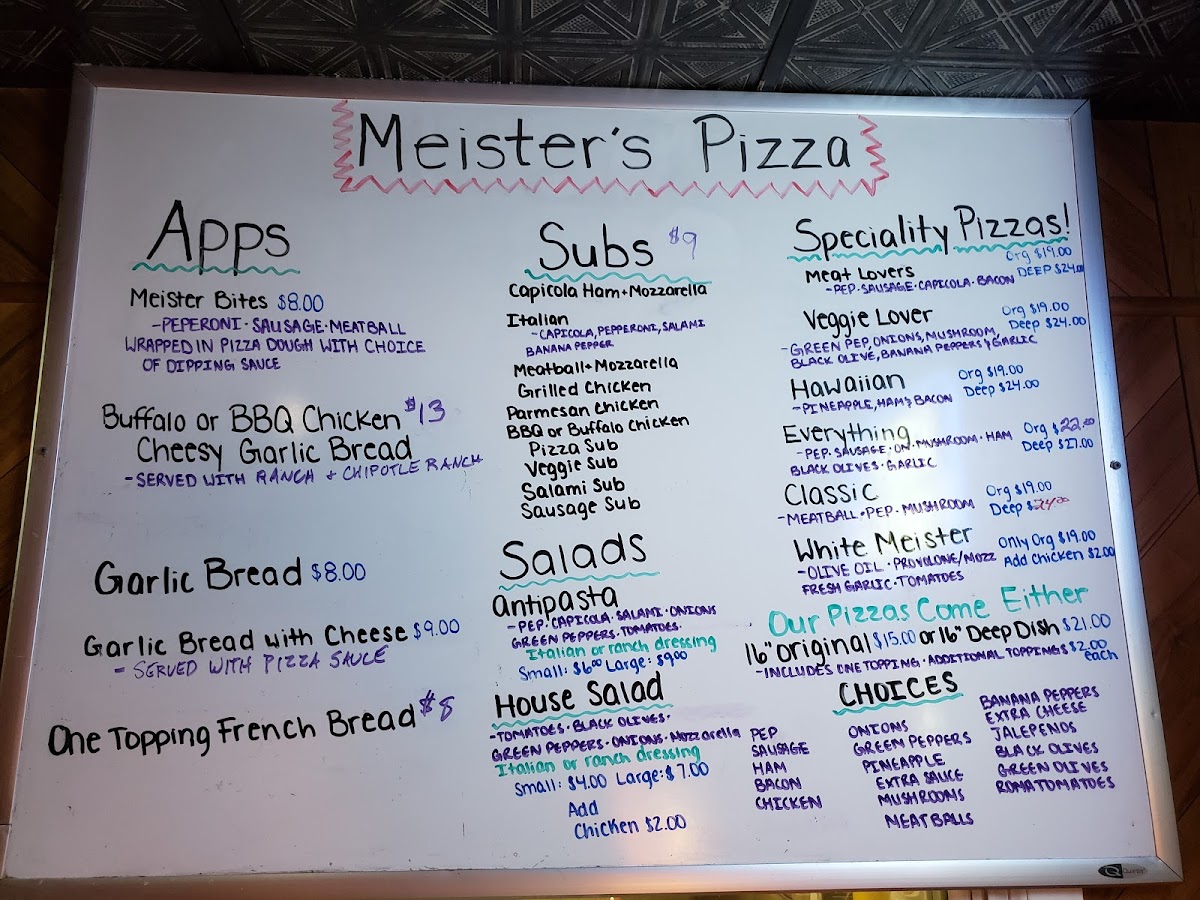 Meister's Pizza
Apps
Meister Bites $8.00
-PEPERONI·SAUSAGE·MEATBALL
WRAPPED IN PIZZA DOUGH WITH CHOICE
OF DIPPING SAUCE
Buffalo or BBQ Chicken $13
Cheesy Garlic Bread
-SERVED WITH RANCH + CHIPOTLE RANCH
Garlic Bread $8.00
Garlic Bread with Cheese $9.00
- SERVED WITH PIZZA SAUCE
One Topping French Bread $8
Subs $9
Capicola Ham+Mozzarella
Italian
-CAPICOLA, PEPPERONI, SALAMI
BANANA PEPPER
Meatball+Mozzarella
Grilled Chicken
Parmesan Chicken
BBQ or Buffalo Chicken
Pizza Sub
Veggie Sub
Salami Sub
Sausage Sub
Salads
Antipasta
-PEP·CAPICOLA·SALAMI·ONIONS
GREEN PEPPERS·TOMATOES·
Italian or ranch dressing
Small: $6.00 Large: $9.00
House Salad
-TOMATOES·BLACK OLIVES·
GREEN PEPPERS·ONIONS·Mozzarella
Italian or ranch dressing
Small: $4.00 Large: $7.00
Add
Chicken $2.00
Speciality Pizzas!
Meat Lovers Org $19.00
-PEP·SAUSAGE·CAPICOLA·BACON DEEP $24.00
Veggie Lover Org $19.00
Deep $24.00
-GREEN PEP, ONIONS, MUSHROOM,
BLACK OLIVE, BANANA PEPPERS & GARLIC
Hawaiian Org $19.00
-PINEAPPLE, HAM & BACON Deep $24.00
Everything Org $22.00
-PEP·SAUSAGE·ON·MUSHROOM·HAM Deep $27.00
BLACK OLIVES·GARLIC
Classic Org $19.00
-MEATBALL·PEP·MUSHROOM Deep $24.00
White Meister Only Org $19.00
-OLIVE OIL·PROVOLONE/MOZZ Add Chicken $2.00
FRESH GARLIC·TOMATOES
Our Pizzas Come Either
16" original $15.00 or 16" Deep Dish $21.00
-INCLUDES ONE TOPPING·ADDITIONAL TOPPINGS $2.00
each
CHOICES
PEP
SAUSAGE
HAM
BACON
CHICKEN
ONIONS
GREEN PEPPERS
PINEAPPLE
EXTRA SAUCE
MUSHROOMS
MEATBALLS
BANANA PEPPERS
EXTRA CHEESE
JALEPENOS
BLACK OLIVES
GREEN OLIVES
ROMATOMATOES